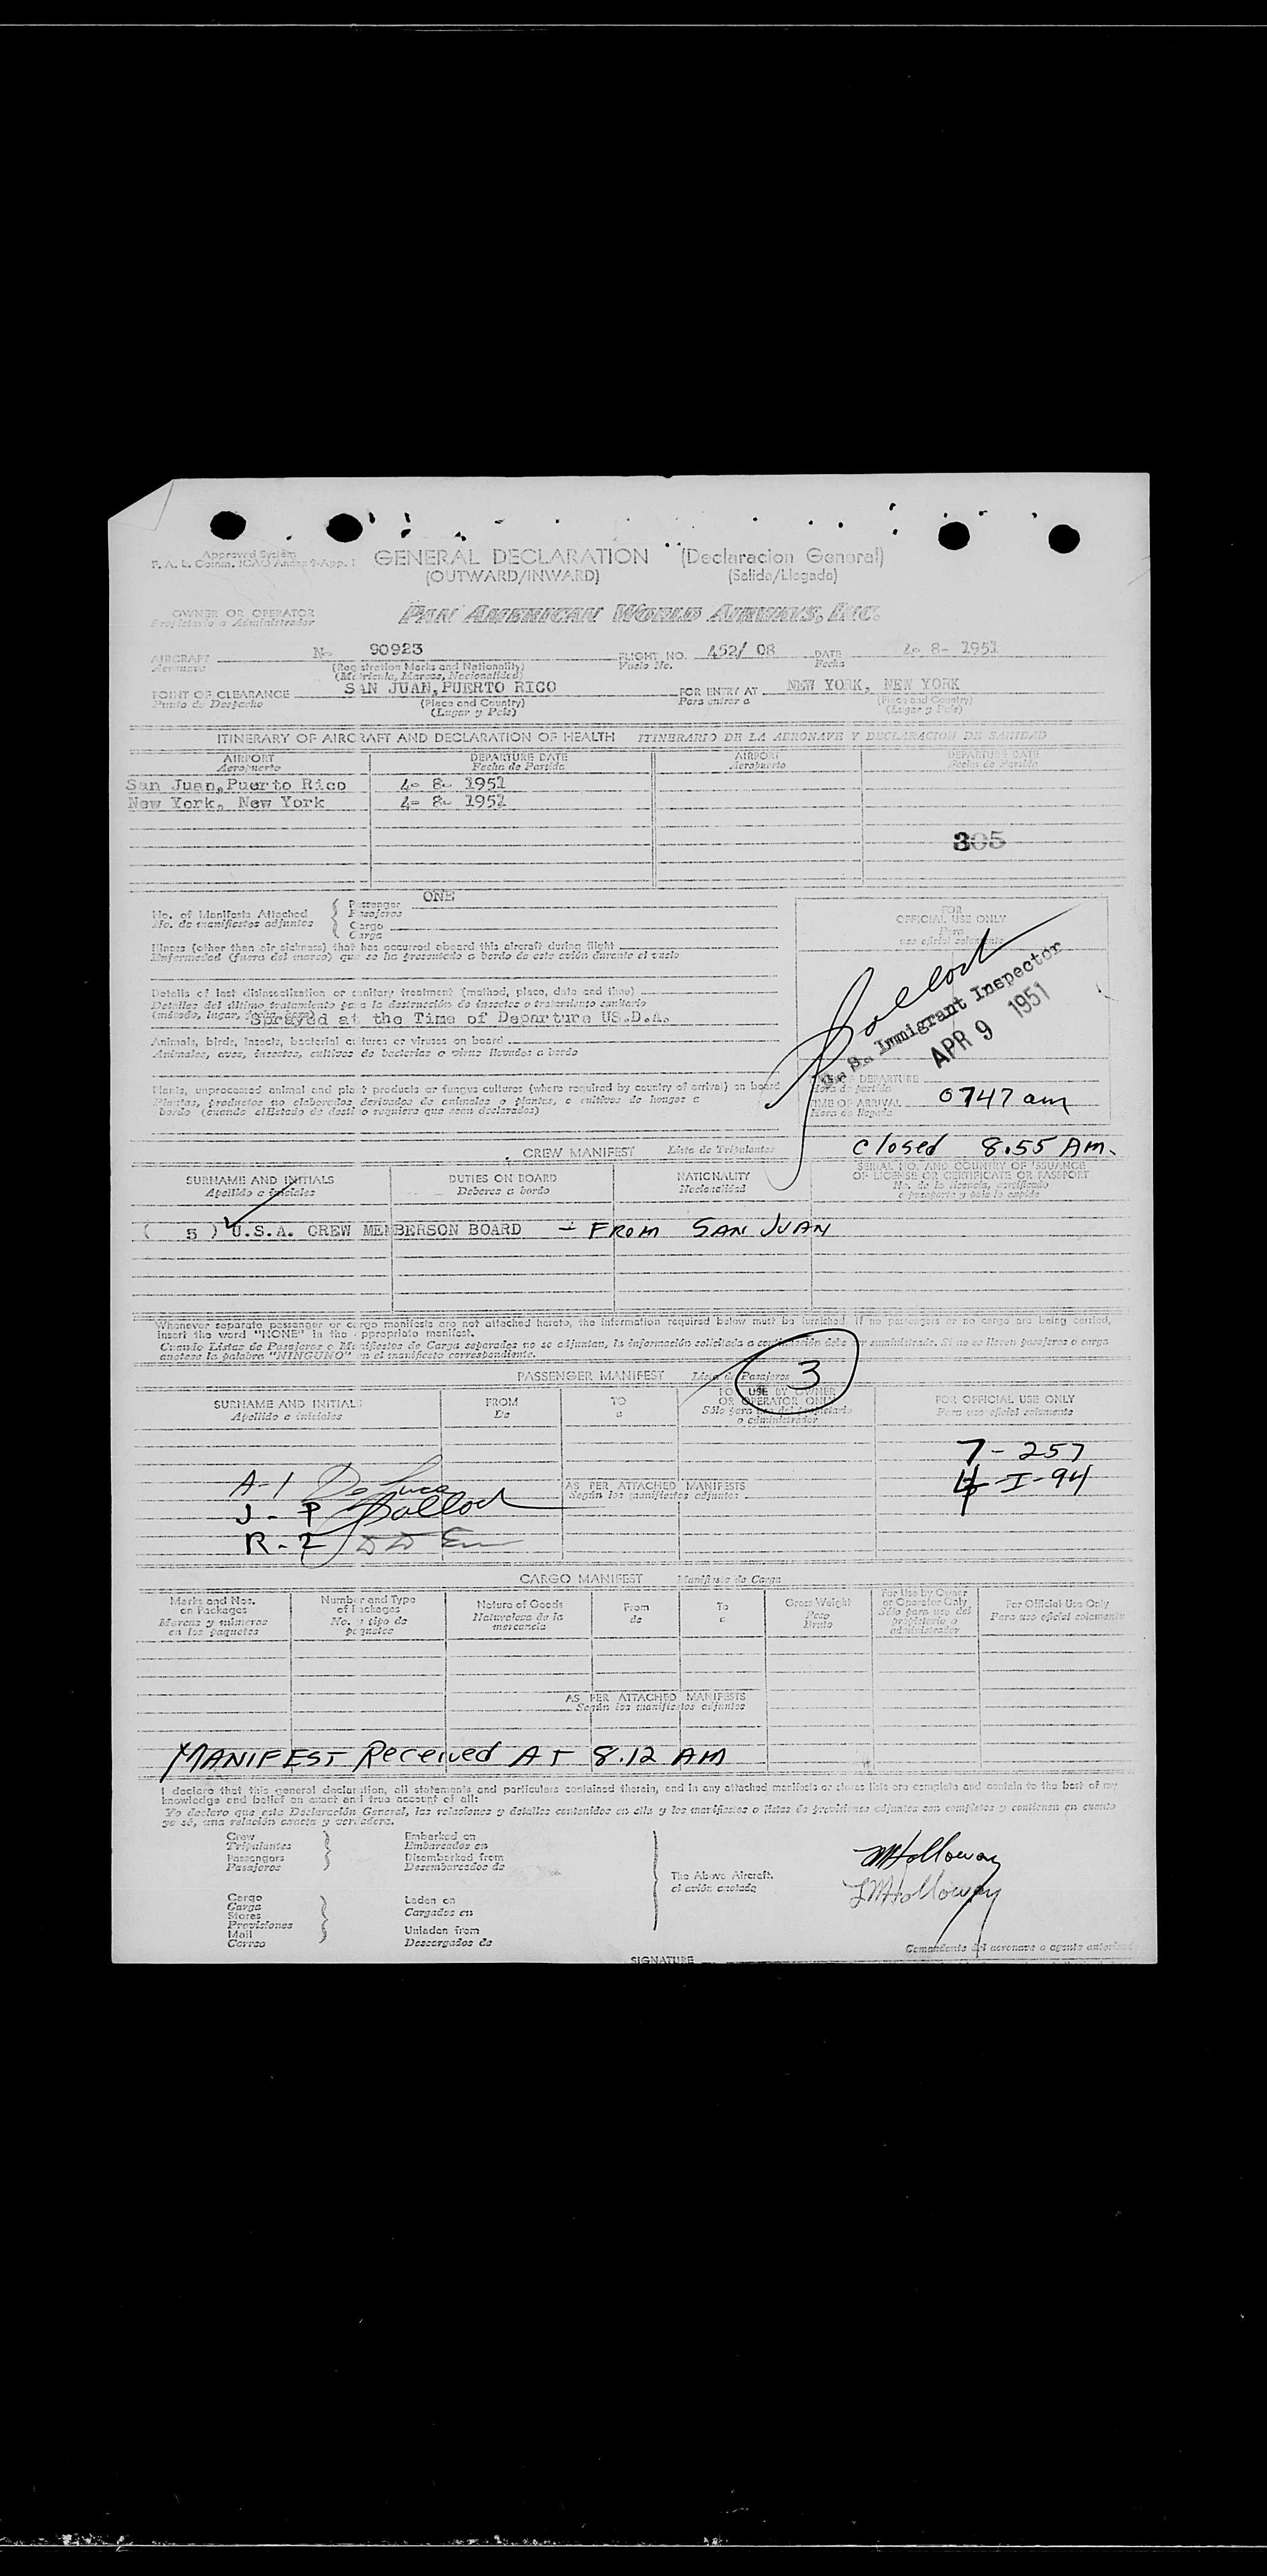 Approved System
F. A. L. Comm. ICAO Annex 9-App. 1
GENERAL DECLARATION (Declaracion General)
(OUTWARD/INWARD) (Salida/Llegada)
OWNER OR OPERATOR
Propietario o Administrador
PAN AMERICAN WORLD AIRWAYS, INC.
AIRCRAFT N- 90923 FLIGHT NO. 452/ 08 DATE 4- 8- 1951
Aeronave (Registration Marks and Nationality) Vuelo No. Fecha
(Matricula, Marcas, Nacionalidad)
POINT OF CLEARANCE SAN JUAN, PUERTO RICO FOR ENTRY AT NEW YORK, NEW YORK
Punto de Despacho (Place and Country) Para entrar a (Place and Country)
(Lugar y País) (Lugar y País)
ITINERARY OF AIRCRAFT AND DECLARATION OF HEALTH ITINERARIO DE LA AERONAVE Y DECLARACION DE SANIDAD
AIRPORT DEPARTURE DATE AIRPORT DEPARTURE DATE
Aeropuerto Fecha de Partida Aeropuerto Fecha de Partida
San Juan, Puerto Rico 4- 8- 1951
New York, New York 4- 8- 1951
305
ONE
No. of Manifests Attached Passenger
No. de manifiestos adjuntos Pasajeros
Cargo
Carga
FOR
OFFICIAL USE ONLY
Para
uso oficial solamente
Illness (other than air sickness) that has occurred aboard this aircraft during flight
Enfermedad (fuera del mareo) que se ha presentado a bordo de este avión durante el vuelo
Details of last disinsectization or sanitary treatment (method, place, date and time)
Detalles del último tratamiento para la desinsección de insectos o tratamiento sanitario
(método, lugar, fecha, hora)
Sprayed at the Time of Departure US.D.A.
Pollock
U. S. Immigrant Inspector
APR 9 1951
Animals, birds, insects, bacterial cultures or viruses on board
Animales, aves, insectos, cultivos de bacterias o virus llevados a bordo
Plants, unprocessed animal and plant products or fungus cultures (where required by country of arrival) on board
Plantas, productos no elaborados derivados de animales o plantas, o cultivos de hongos a
bordo (cuando el Estado de destino requiera que sean declarados)
TIME OF DEPARTURE
Hora de partida
TIME OF ARRIVAL 0747 am
Hora de llegada
closed 8.55 AM.
CREW MANIFEST Lista de Tripulantes
SURNAME AND INITIALS DUTIES ON BOARD NATIONALITY SERIAL NO. AND COUNTRY OF ISSUANCE
OF LICENSE OR CERTIFICATE OR PASSPORT
Apellido e iniciales Deberes a bordo Nacionalidad No. de la licencia, certificado
o pasaporte y país lo expide
( 5 ) U.S.A. CREW MEMBERSON BOARD - FROM SAN JUAN
Whenever separate passenger or cargo manifests are not attached hereto, the information required below must be furnished. If no passengers or no cargo are being carried,
insert the word "NONE" in the appropriate manifest.
Cuando Listas de Pasajeros o Manifiestos de Carga separados no se adjuntan, la información solicitada a continuación debe ser suministrada. Si no se llevan pasajeros o carga
anótese la palabra "NINGUNO" en el manifiesto correspondiente.
3
PASSENGER MANIFEST Lista de Pasajeros
SURNAME AND INITIALS FROM TO FOR USE BY OWNER
OR OPERATOR ONLY FOR OFFICIAL USE ONLY
Apellido e iniciales De a Sólo para uso del propietario
o administrador Para uso oficial solamente
7- 257
4-I-94
A-1 De Luca
AS PER ATTACHED MANIFESTS
Según los manifiestos adjuntos
J - P Pollock
R - 2
CARGO MANIFEST Manifiesto de Carga
Marks and Nos.
on Packages
Marcas y números
en los paquetes
Number and Type
of Packages
No. y tipo de
paquetes
Nature of Goods
Naturaleza de la
mercancía
From
de
To
a
Gross Weight
Peso
Bruto
For Use by Owner
or Operator Only
Sólo para uso del
propietario o
administrador
For Official Use Only
Para uso oficial solamente
AS PER ATTACHED MANIFESTS
Según los manifiestos adjuntos
MANIFEST Received AT 8.12 AM
I declare that this general declaration, all statements and particulars contained therein, and in any attached manifests or stores lists are complete and contain to the best of my
knowledge and belief an exact and true account of all:
Yo declaro que esta Declaración General, las relaciones y detalles contenidos en ella y los manifiestos o listas de provisiones adjuntos son completos y contienen en cuanto
yo sé, una relación exacta y verdadera.
Crew
Tripulantes
Passengers
Pasajeros
Embarked on
Embarcados en
Disembarked from
Desembarcados de
The Above Aircraft.
el avión anotado
Cargo
Carga
Stores
Provisiones
Mail
Correo
Laden on
Cargados en
Unladen from
Descargados de
MHolloway
MHolloway
Comandante del aeronave o agente autorizado
SIGNATURE